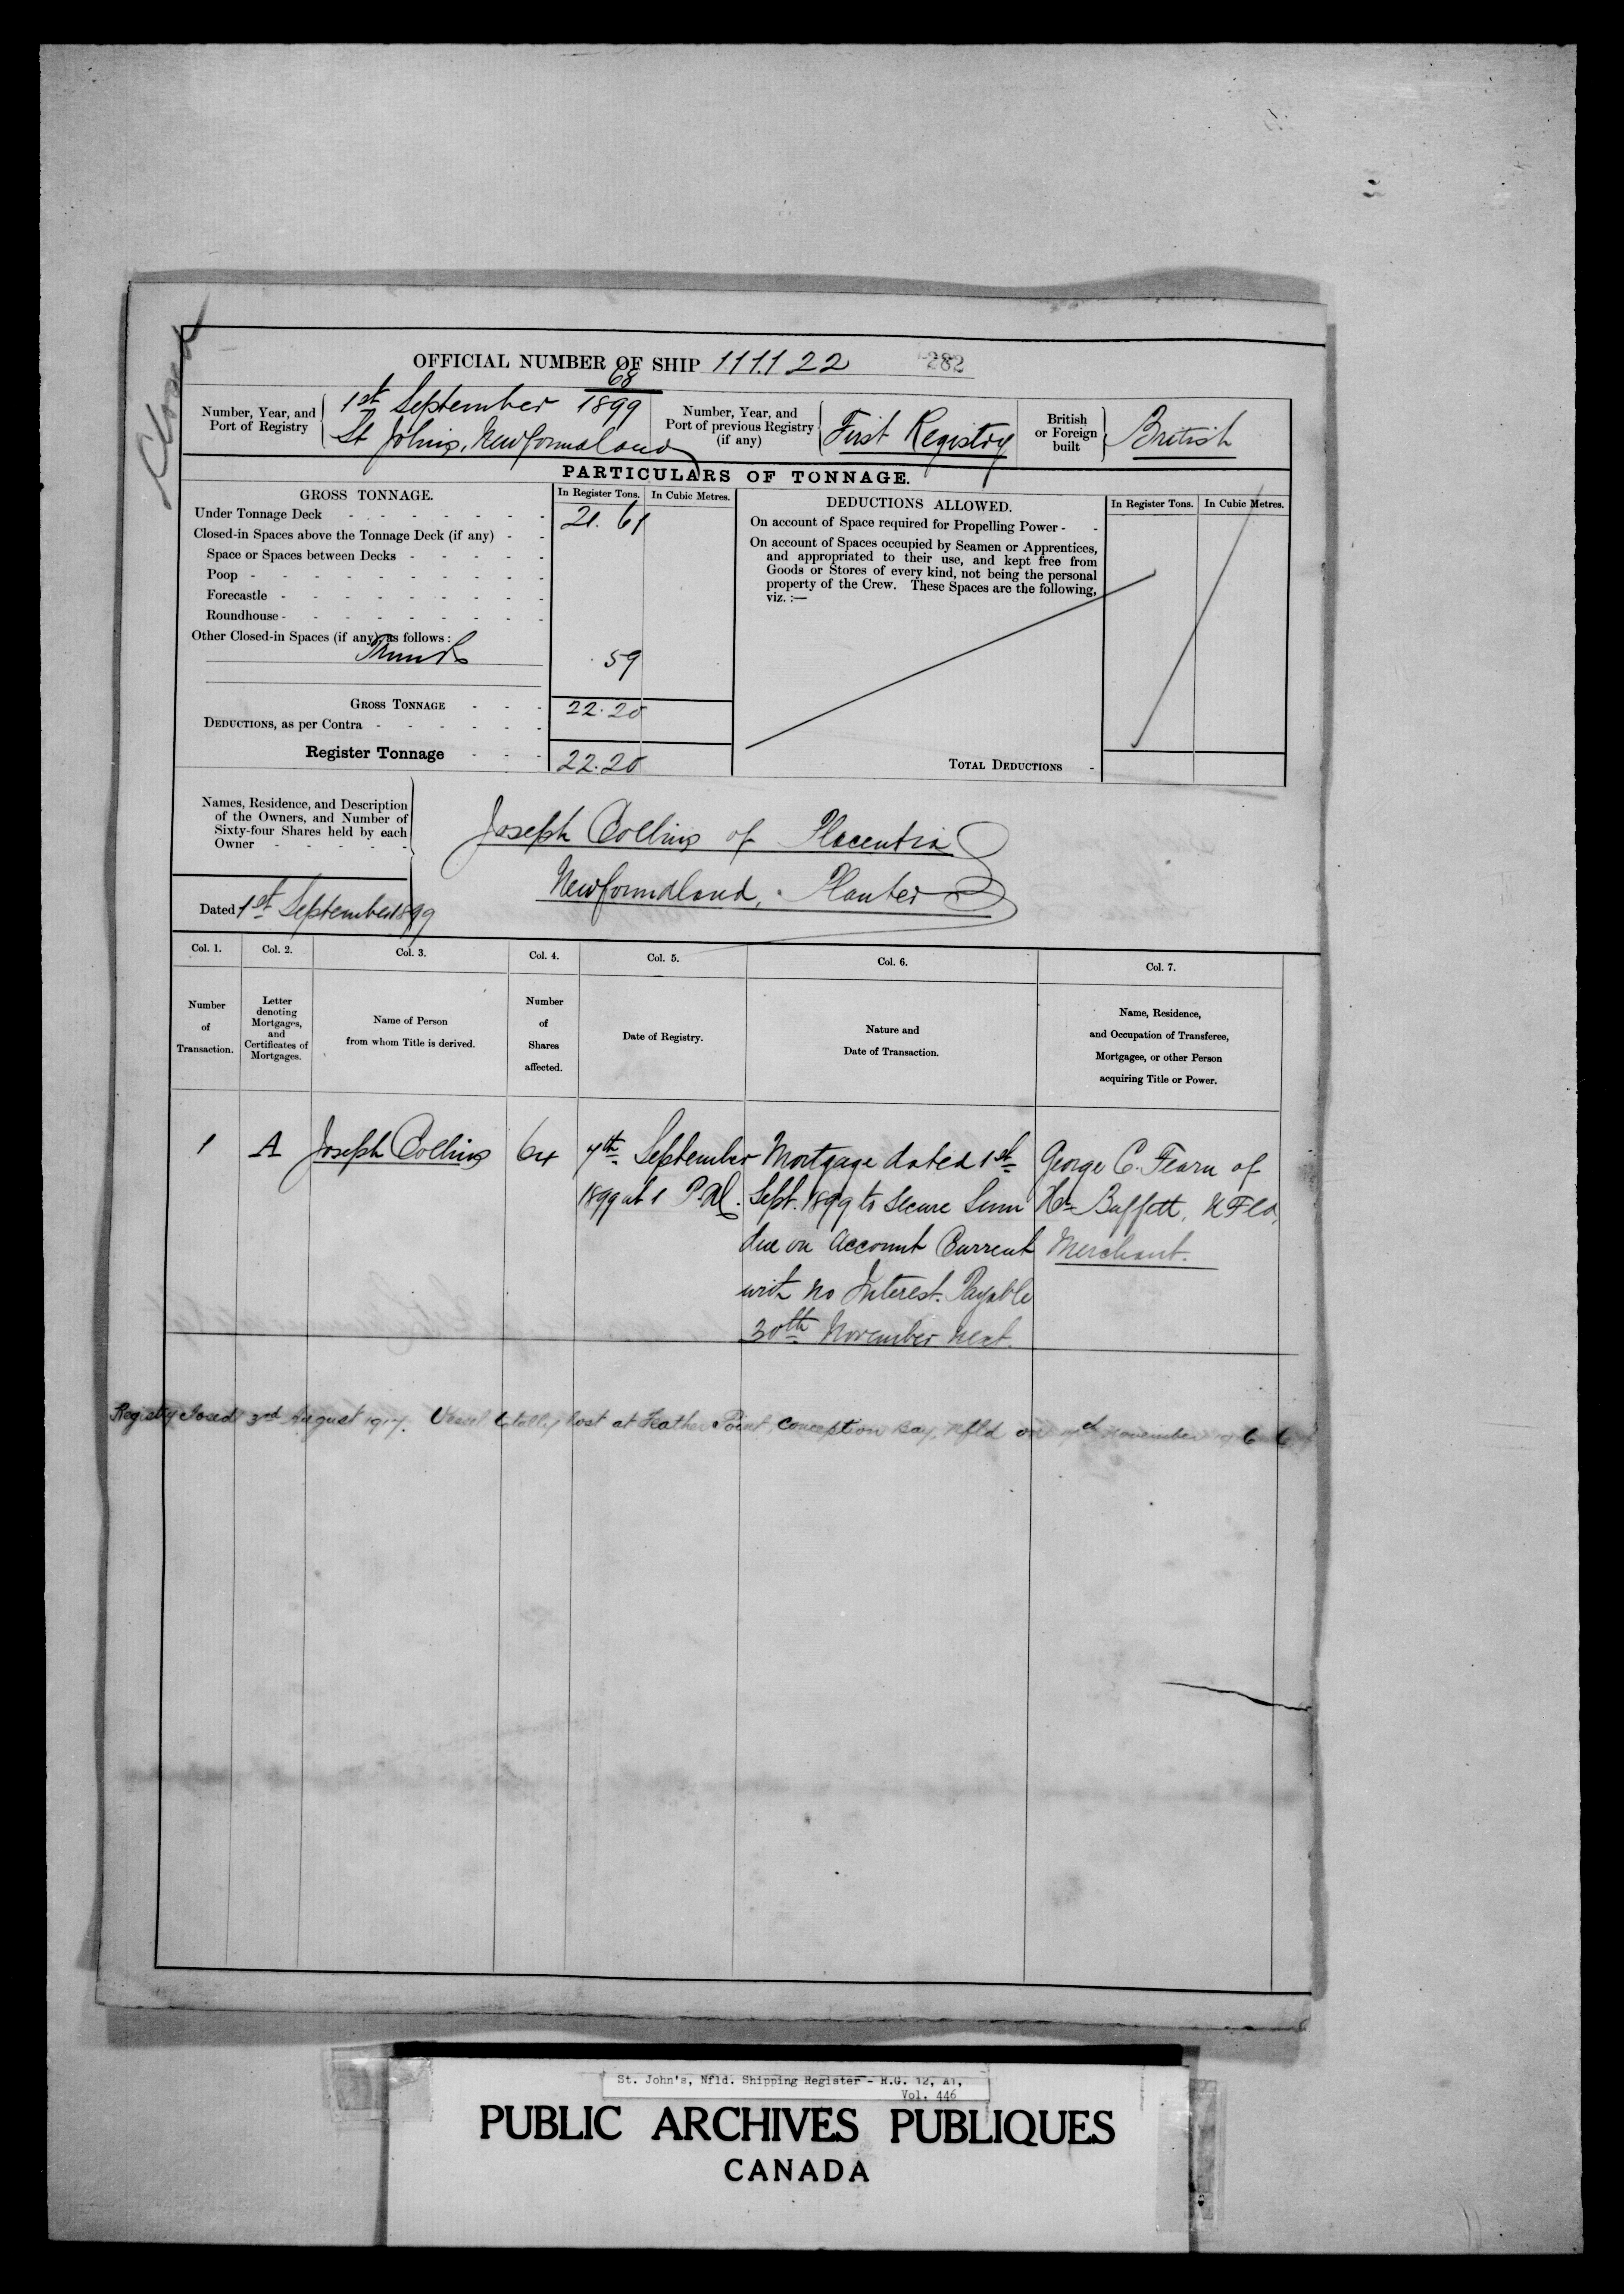 Closed
OFFICIAL NUMBER OF SHIP 111,122 282
68
Number, Year, and Port of Registry
1st September 1899
St John's, Newfoundland
Number, Year, and Port of previous Registry (if any)
First Registry
British or Foreign built
British
PARTICULARS OF TONNAGE.
GROSS TONNAGE.
In Register Tons. In Cubic Metres.
Under Tonnage Deck - - - - - - - 21.61
Closed-in Spaces above the Tonnage Deck (if any) - -
Space or Spaces between Decks - - - - -
Poop - - - - - - - - - -
Forecastle - - - - - - - - -
Roundhouse - - - - - - - - -
Other Closed-in Spaces (if any) as follows :
.59
GROSS TONNAGE - - - 22.20
DEDUCTIONS, as per Contra - - - - - -
Register Tonnage - - - 22.20
DEDUCTIONS ALLOWED.
In Register Tons. In Cubic Metres.
On account of Space required for Propelling Power - -
On account of Spaces occupied by Seamen or Apprentices,
and appropriated to their use, and kept free from
Goods or Stores of every kind, not being the personal
property of the Crew. These Spaces are the following,
viz. :—
TOTAL DEDUCTIONS -
Names, Residence, and Description
of the Owners, and Number of
Sixty-four Shares held by each
Owner - - - - -
Joseph Collins of Placentia
Newfoundland, Planter
Dated 1st September 1899
Col. 1. Col. 2. Col. 3. Col. 4. Col. 5. Col. 6. Col. 7.
Number of Transaction.
Letter denoting Mortgages, and Certificates of Mortgages.
Name of Person from whom Title is derived.
Number of Shares affected.
Date of Registry.
Nature and Date of Transaction.
Name, Residence, and Occupation of Transferee, Mortgagee, or other Person acquiring Title or Power.
1 A Joseph Collins 64 7th September Mortgage dated 1st George C. Fearn of
1899 at 1 P.M. Sept. 1899 to secure Sum Hr Buffett, NFld,
due on Account Current Merchant.
with no Interest. Payable
30th November next.
Registry closed 3rd August 1917. Vessel totally lost at Feather Point, Conception Bay, Nfld on November
St. John's, Nfld. Shipping Register - R.G. 12, A1,
Vol. 446
PUBLIC ARCHIVES PUBLIQUES
CANADA